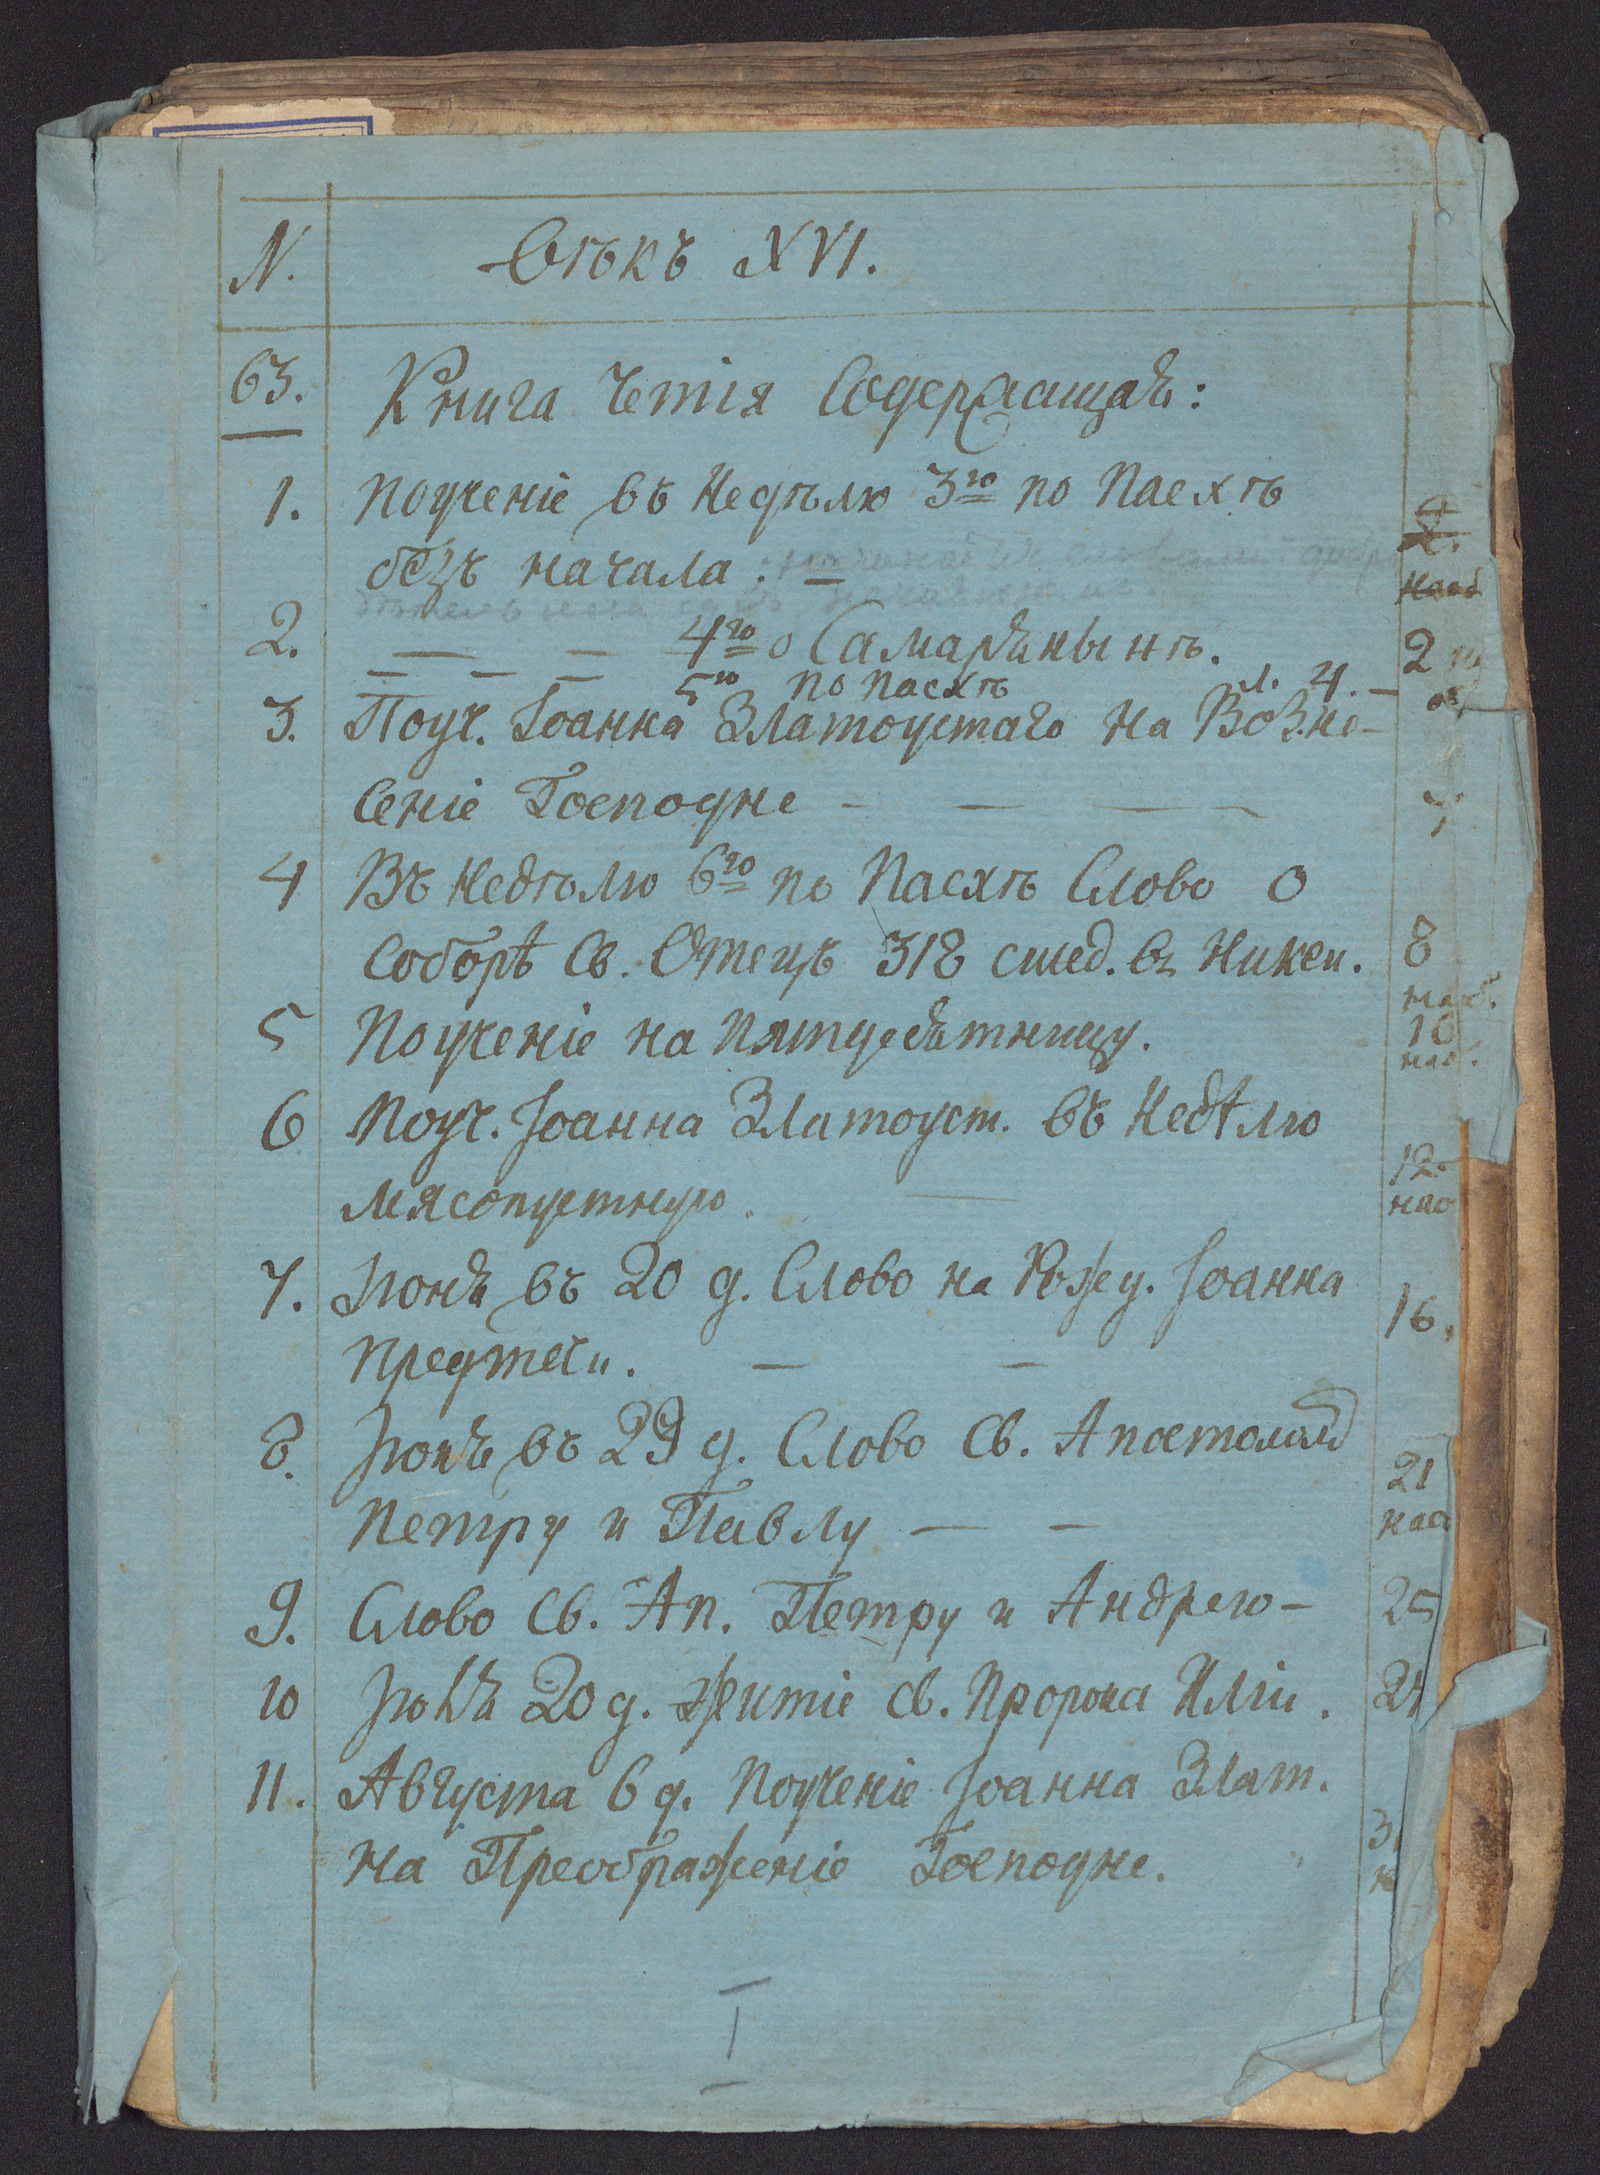 N. Вѣкъ XVI.
63. Книга Четія Содержащая:
1. Поученіе въ Недѣлю 3го по Пасхѣ
безъ начала. —
2. — — 4го о Самарянынѣ. 2
— — — 5го по Пасхѣ л. 4. —
3. Поуч. Іоанна Златоустаго на Возне-
сеніе Господне — — — 7
4 Въ Недѣлю 6го по Пасхѣ Слово о
Соборѣ Св. Отецъ 318 сшед. въ Никеи. 8
наоб.
5 Поученіе на Пятдесятницу. 10
наоб.
6 Поуч. Іоанна Златоуст. въ Недѣлю 12.
мясопустную. — нао
7. Іюня въ 20 д. Слово на Рожд. Іоанна 16.
Предтечи. — —
8. Іюня въ 29 д. Слово Св. Апостоламъ 21
Петру и Павлу — — нао
9. Слово Св. Ап. Петру и Андрею — 25
10 Іюля 20 д. Житіе Св. Пророка Иліи.
11. Августа 6 д. Поученіе Іоанна Злат.
на Преображеніе Господне.
I